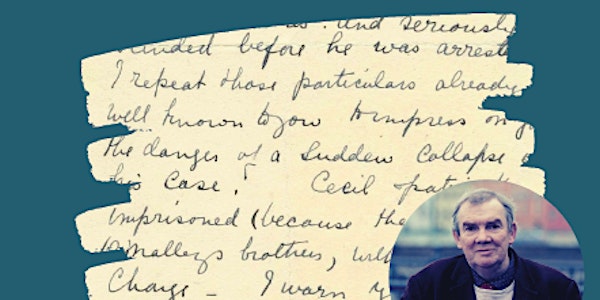 and seriously
before he was
I repeat those particulars already
well known to you to impress on
the danger of a sudden collapse
his case. Cecil
imprisoned (because the
O'Malleys brothers,
Charge - I warn